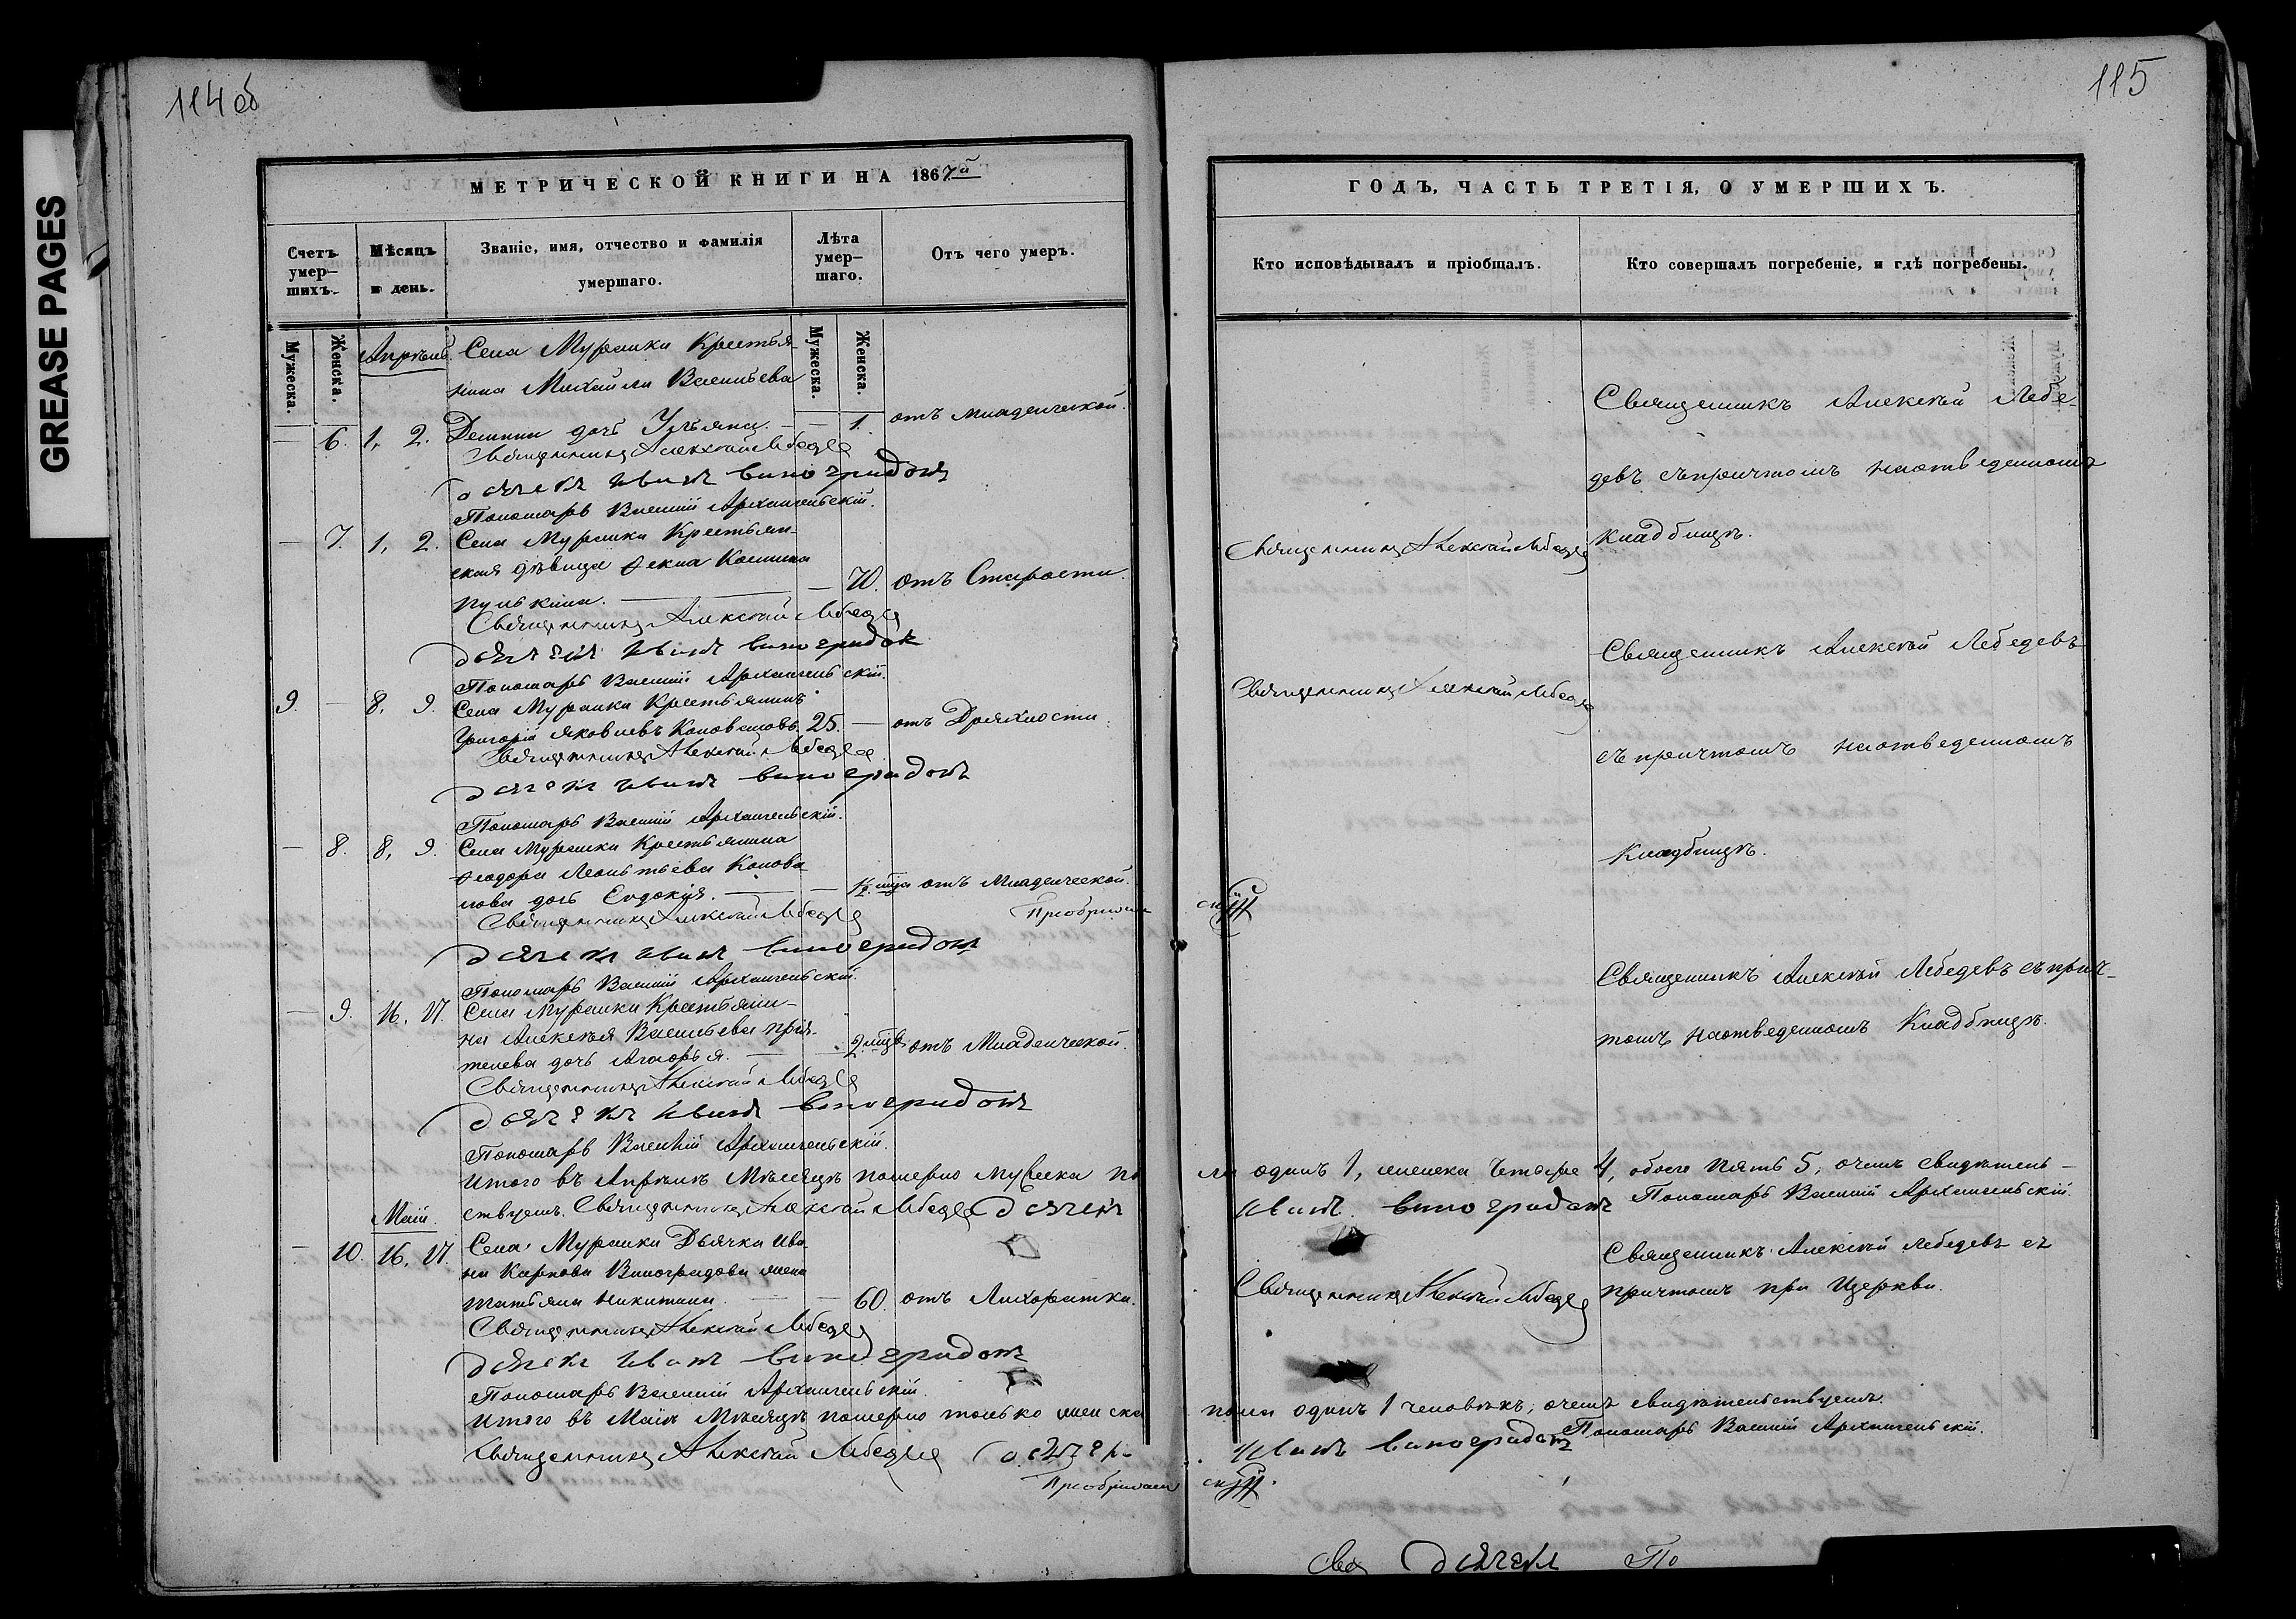 GREASE PAGES
114 об
МЕТРИЧЕСКОЙ КНИГИ НА 1867й
Счетъ умер-шихъ.
Мѣсяцъ и день.
Званіе, имя, отчество и фамилія умершаго.
Лѣта умер-шаго.
Отъ чего умеръ.
Мужеска. Женска. Мужеска. Женска.
Апрѣль. Села Мурашки Крестья-
нина Михайлы Васильева
— 6. 1, 2. дочь — — 1. отъ младенческой.
Священникъ Алексѣй Лебедевъ
дьячекъ Иванъ Виноградовъ
Пономарь Василій Архангельскій.
— 7. 1, 2. Села Мурашки Крестьян-
ская дѣвица Ѳекла
— 70. отъ Старости.
Священникъ Алексѣй Лебедевъ
дьячекъ Иванъ Виноградовъ
Пономарь Василій Архангельскій.
9. — 8, 9. Села Мурашки Крестьянинъ
Григорій Яковлевъ Коноваловъ 25. — отъ Дряхлости.
Священникъ Алексѣй Лебедевъ
дьячекъ Иванъ Виноградовъ
Пономарь Василій Архангельскій.
— 8. 8, 9. Села Мурашки Крестьянина
Ѳеодора Леонтьева Конова-
лова дочь Евдокія. — — ½ мца отъ Младенческой.
Священникъ Алексѣй Лебедевъ
дьячекъ Иванъ Виноградовъ
Пономарь Василій Архангельскій.
— 9. 16, 17. Села Мурашки Крестьяни-
на Алексѣя Васильева Прія-
телева дочь — 2 мцв отъ Младенческой.
Священникъ Алексѣй Лебедевъ
дьячекъ Иванъ Виноградовъ
Пономарь Василій Архангельскій.
Итого въ Апрѣлѣ Мѣсяцѣ померло мужеска по
ствуемъ. Священникъ Алексѣй Лебедевъ дьячекъ
Маій.
— 10. 16, 17. Села Мурашки Дьячка Ива-
на Карпова Виноградова жена
Татьяна Никитина. — — 60. отъ Лихорадки.
Священникъ Алексѣй Лебедевъ
дьячекъ Иванъ Виноградовъ
Пономарь Василій Архангельскій.
Итого въ Маіѣ Мѣсяцѣ померло только женска
Священникъ Алексѣй Лебедевъ
115
ГОДЪ, ЧАСТЬ ТРЕТІЯ, О УМЕРШИХЪ.
Кто исповѣдывалъ и пріобщалъ.
Кто совершалъ погребеніе, и гдѣ погребены.
Священникъ Алексѣй Лебе-
девъ съ причтомъ на отведенномъ
кладбищѣ.
Священникъ Алексѣй Лебедевъ
Священникъ Алексѣй Лебедевъ
Священникъ Алексѣй Лебедевъ
съ причтомъ на отведенномъ
Кладбищѣ.
Священникъ Алексѣй Лебедевъ съ прич-
томъ на отведенномъ Кладбищѣ.
ла одинъ 1, женска Четыре 4, обоего пять 5, о чемъ свидѣтель-
Иванъ Виноградовъ Пономарь Василій Архангельскій.
Священникъ Алексѣй Лебедевъ
Священникъ Алексѣй Лебедевъ съ
причтомъ при Церкви.
пола одинъ 1 человѣкъ, о чемъ свидѣтельствуемъ.
Иванъ Виноградовъ Пономарь Василій Архангельскій.
Свя дьячекъ По